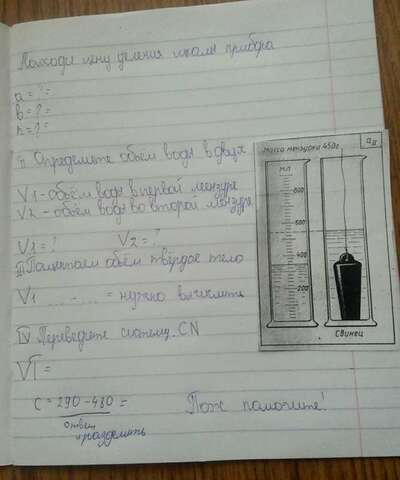 Находи цену деления шкалы прибора
a = ? =
b = ? =
n = ? =
II Определите объём воды в двух
V1 - объём воды в первой мензуре
V2 - объём воды во второй мензуре
V1 = ? V2 = ?
III объём твёрдое тело
V1 = нужно вычислить
IV Переведите систему CN
VT =
C = 290 - 480 =
ответ
и разделить
Пож помогите!
масса мензурки 450г
a II
мл
600
400
300
200
Свинец